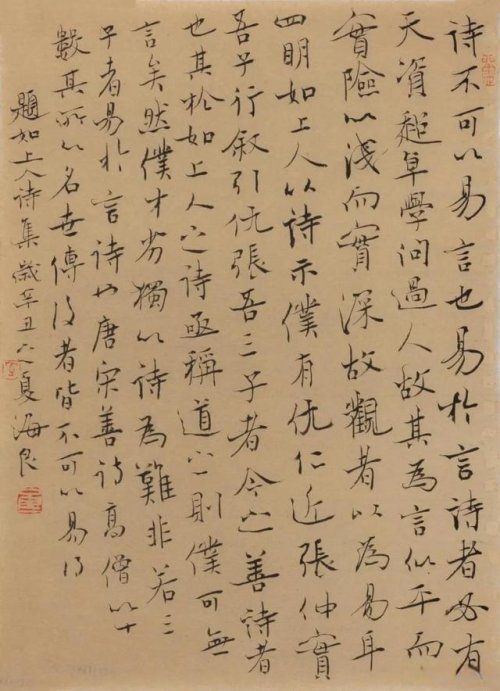 诗不可以易言也易於言诗者必有
天资超卓学问過人故其為言似平而
實險以淺而實深故觀者以為易耳
四明如上人以诗示僕有仇仁近張仲實
吾子行叙引仇張吾三子者今之善诗者
也其於如上人之诗亟稱道之則僕可無
言矣然僕才劣獨以诗為難非若三
子者易於言诗也唐宋善诗高僧以十
數其所以名世傳後者皆不可以易得
題如上人诗集歲辛丑之夏海良